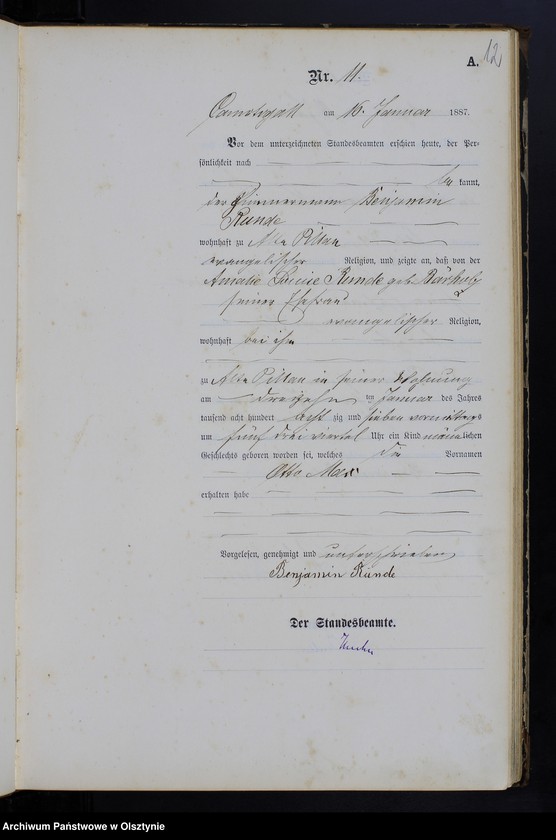 A. 12
Nr. 11.
Camstigall am 15. Januar 1887.
Vor dem unterzeichneten Standesbeamten erschien heute, der Per-
sönlichkeit nach
be kannt,
der Zimmermann Benjamin
Runde
wohnhaft zu Alte Pillau
evangelischer Religion, und zeigte an, daß von der
Amalie Louise Runde geb.
seiner Ehefrau
evangelischer Religion,
wohnhaft bei ihm
zu Alte Pillau in seiner Wohnung
am dreizehn ten Januar des Jahres
tausend acht hundert acht zig und sieben vormittags
um fünf dreiviertel Uhr ein Kind männlichen
Geschlechts geboren worden sei, welches die Vornamen
Otto Max
erhalten habe
Vorgelesen, genehmigt und unterschrieben
Benjamin Runde
Der Standesbeamte.
Archiwum Państwowe w Olsztynie